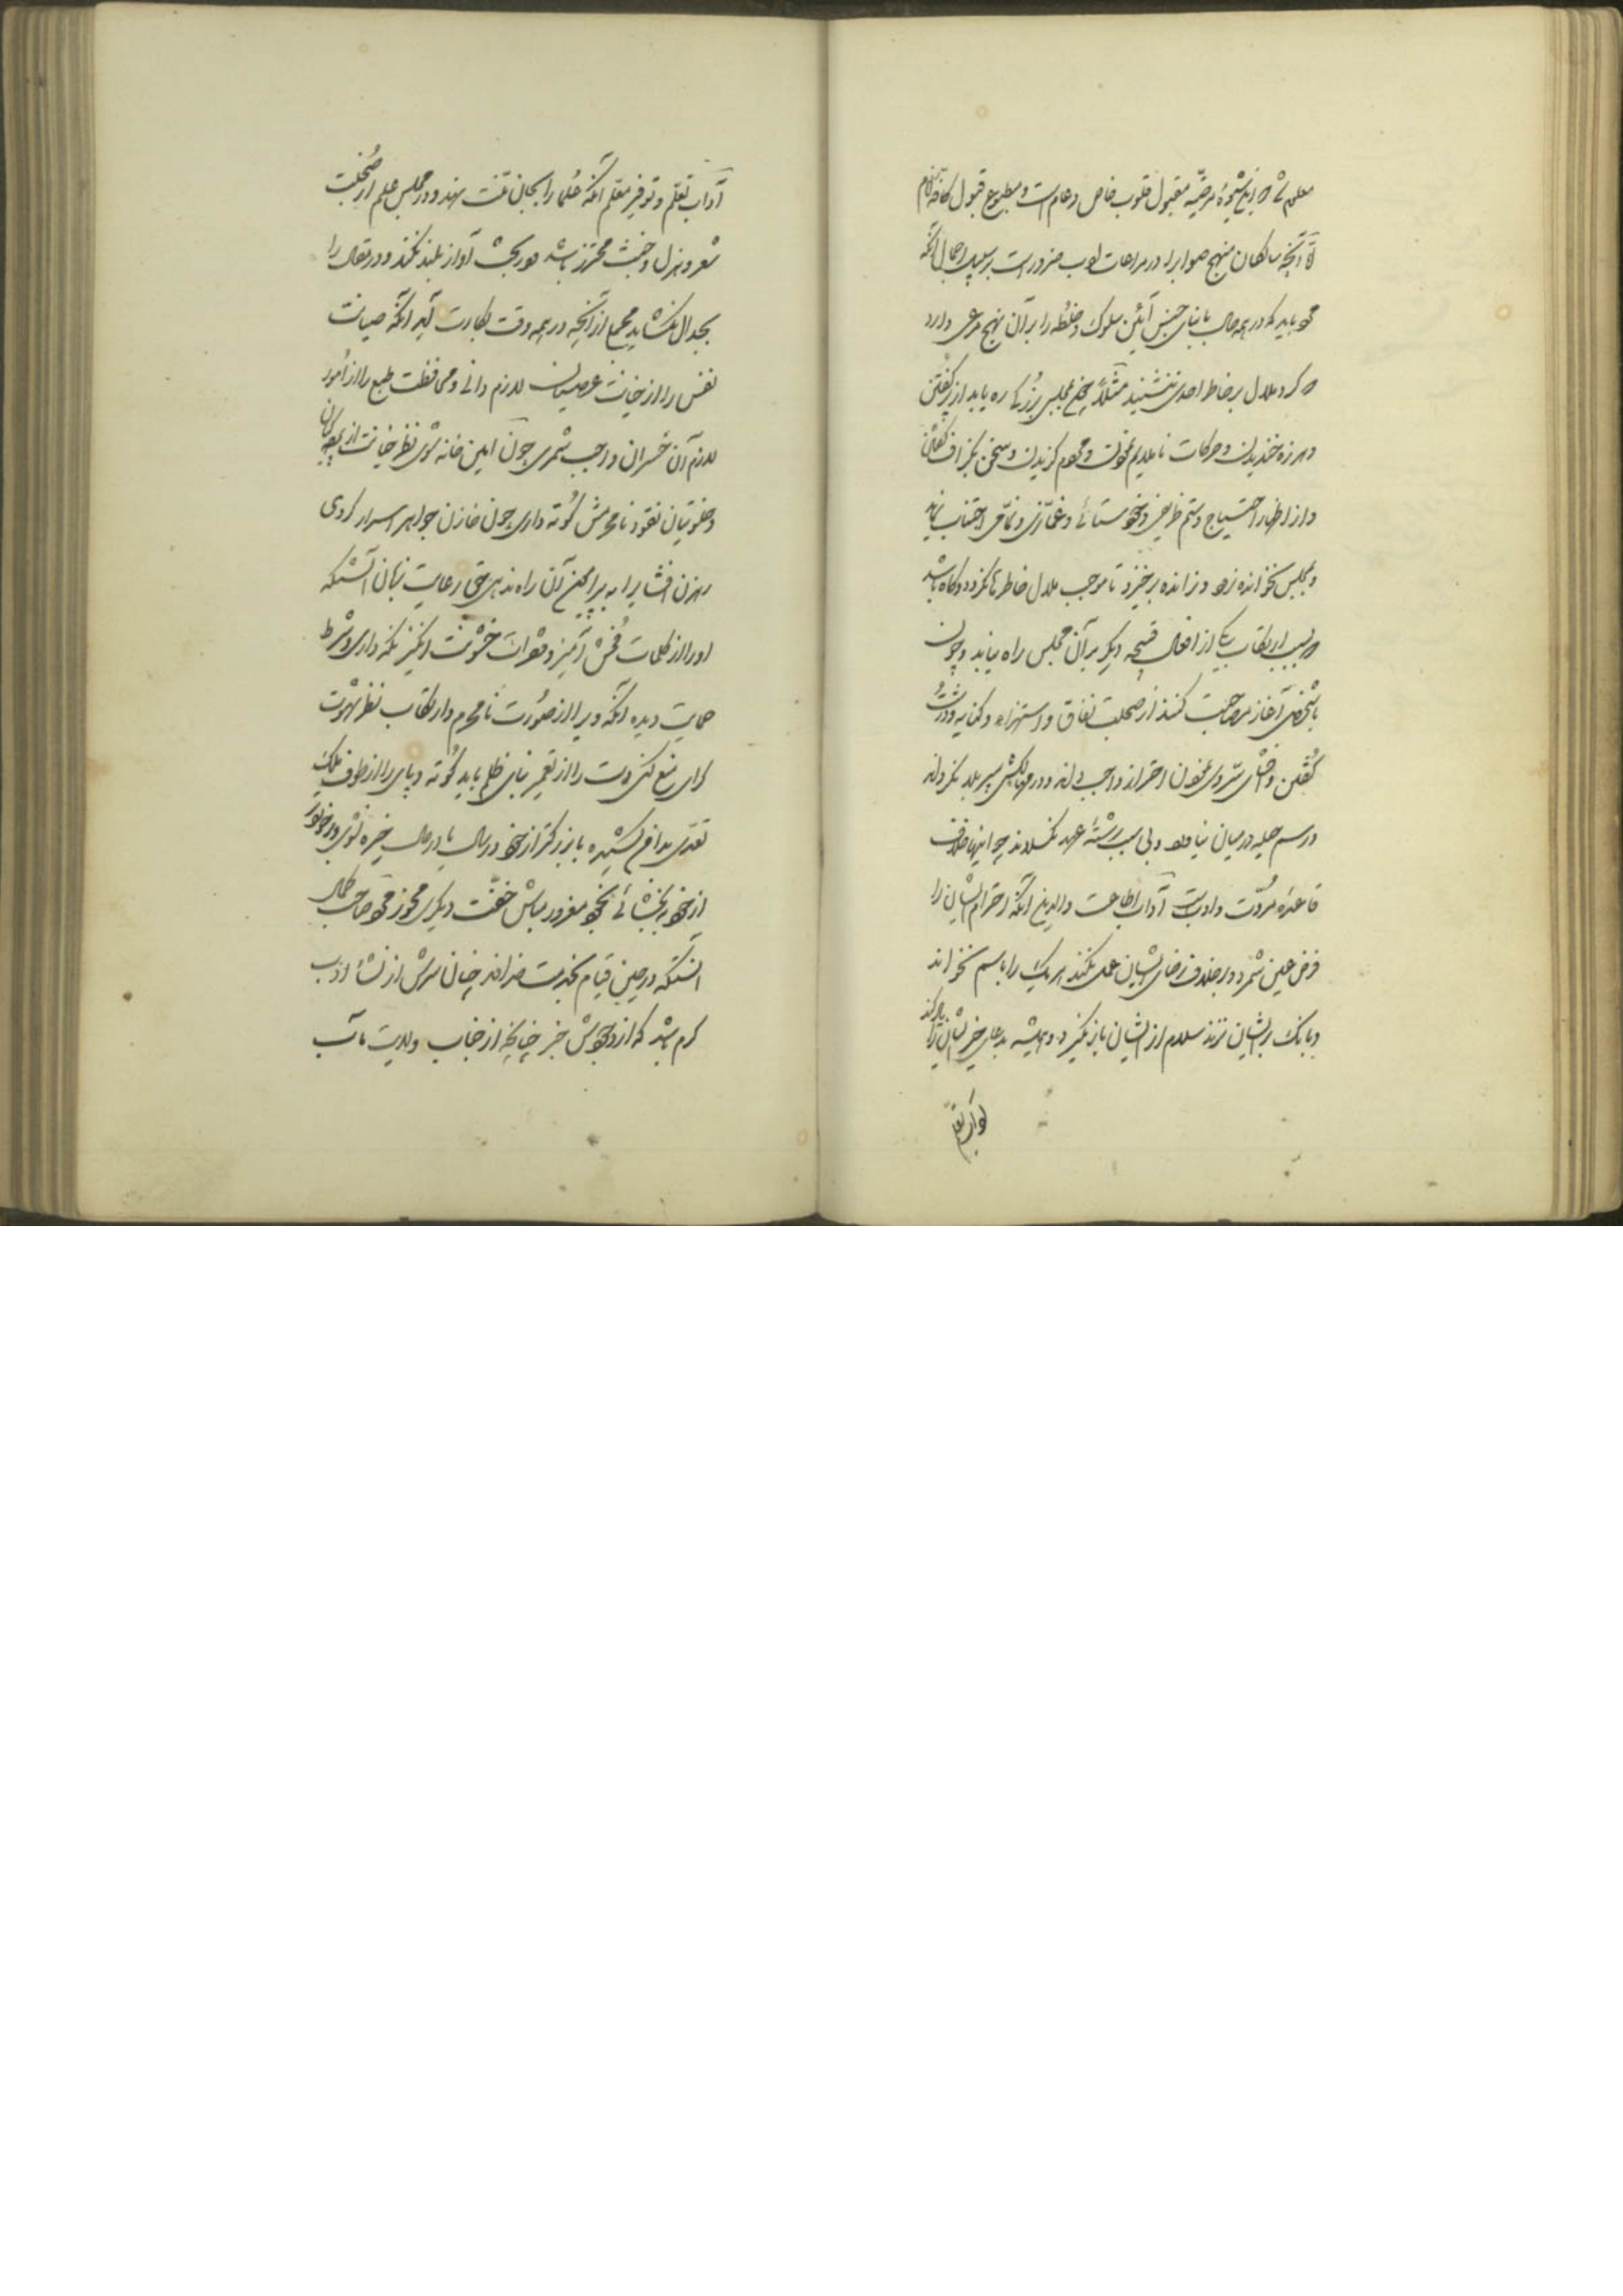 معلوم شد که این شیوهٔ مرضیه مقبول قلوب خاص و عام است و مطبوع قبول کافهٔ انام
آنچه سالکان منهج صواب را در مراعات ادب ضرور است بر سبیل اجمال آنکه
باید که در همه حال با ابنای جنس آئین سلوک و خلطه را بر آن نهج مرعی دارد
که گرد ملال بر خاطر احدی ننشیند مثلاً به مجلس بزرگی ره یابد از گفتن
و هرزه خندیدن و حرکات ناملایم و سخن بگزاف گفتن
و از اظهار احتیاج و ستم ظریفی و خودستائی و غمازی و نمامی اجتناب نماید
و به مجلس نخوانده نرود و نرانده برخیزد تا موجب ملال خاطر نگردد و گاه باشد
که بسبب ارتکاب یکی از افعال قبیحه دیگر بر آن مجلس راه نیابد و چون
با شخصی آغاز مصاحبت کند از صحبت نفاق و استهزاء و کنایه و درشت
گفتن و افشای سر وی احتراز واجب داند و در
و رسم حیله در میان نیاورد و بی سبب رشتهٔ عهد نگسلاند چو اینها خلاف
قاعدهٔ مروت و ادبست آداب اطاعت والدین آنکه احترام ایشان را
فرض عین شمرد و بر خلاف رضای ایشان عمل نکند هر یک را باسم نخواند
و بانگ بر ایشان نزند سلام از ایشان باز نگیرد و همیشه بدعای خیر ایشان را یاد کند
آداب تعلم
آداب تعلم و توقیر معلم آنکه علما را بجان منت نهد و در مجلس علم از صحبت
شعر و هزل و خبث محترز باشد و در بحث آواز بلند نکند و در مقال را
بجدال نگشاید مجملا از آنچه در همه وقت بکارت آید آنکه صیانت
نفس را از خیانت عصیان لازم دانی و محافظت طبع را از امور
لازم آن خسران واجب شمری چون امین خانه شوی نظر خیانت از
و خلوتیان نقود نامحرمش کوته داری چون خازن جواهر اسرار گردی
رهزن افشا را به پیرامن آن راه ندهی حق رعایت زبان آنستکه
او را از کلمات فحش آمیز و فقرات خشونت انگیز نگه داری و شرط
حمایت دیده آنکه ویرا از صورت نامحرم و ارتکاب نظر شهوت
گرای منع کنی دست را از تعمیر بنای ظلم باید کوته و پای را از طوف
تعدی بدامن کشیده با بزرگتر از خود در سال یا در مال خیره نشوی و بر
از خود ببخشائی بخود مغرور مباش خفت دیگری مجوز صاحب کمال
آنستکه در حین قیام بخدمت خداوند چنان سرش از نشأ ادب
گرم باشد که از وجودش خبر چنانچه از جناب ولایت مآب